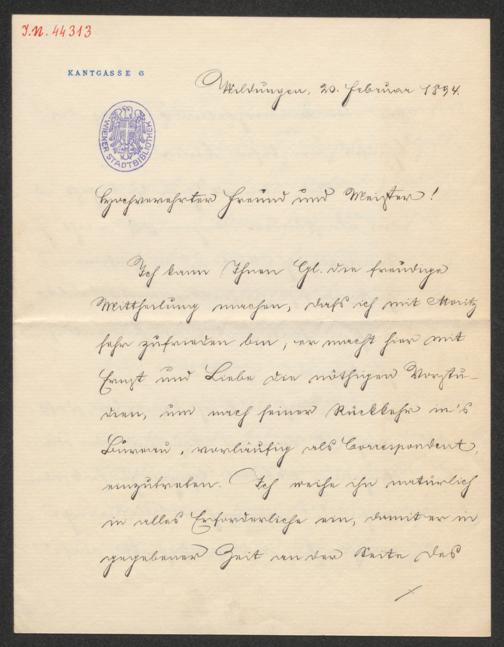 I.N. 44313
KANTGASSE 6
Wildungen, 20. Februar 1894.
WIENER STADTBIBLIOTHEK
Hochverehrter Freund und Meister!
Ich kann Ihnen Gl. die freudige
Mittheilung machen, dass ich mit Moritz
sehr zufrieden bin, er macht hier mit
Ernst und Liebe die nöthigen Vorstu-
dien, um nach seiner Rückkehr in's
Bureau, vorläufig als Correspondent,
einzutreten. Ich weihe ihn natürlich
in alles Erforderliche ein, damit er in
gegebener Zeit an der Seite des